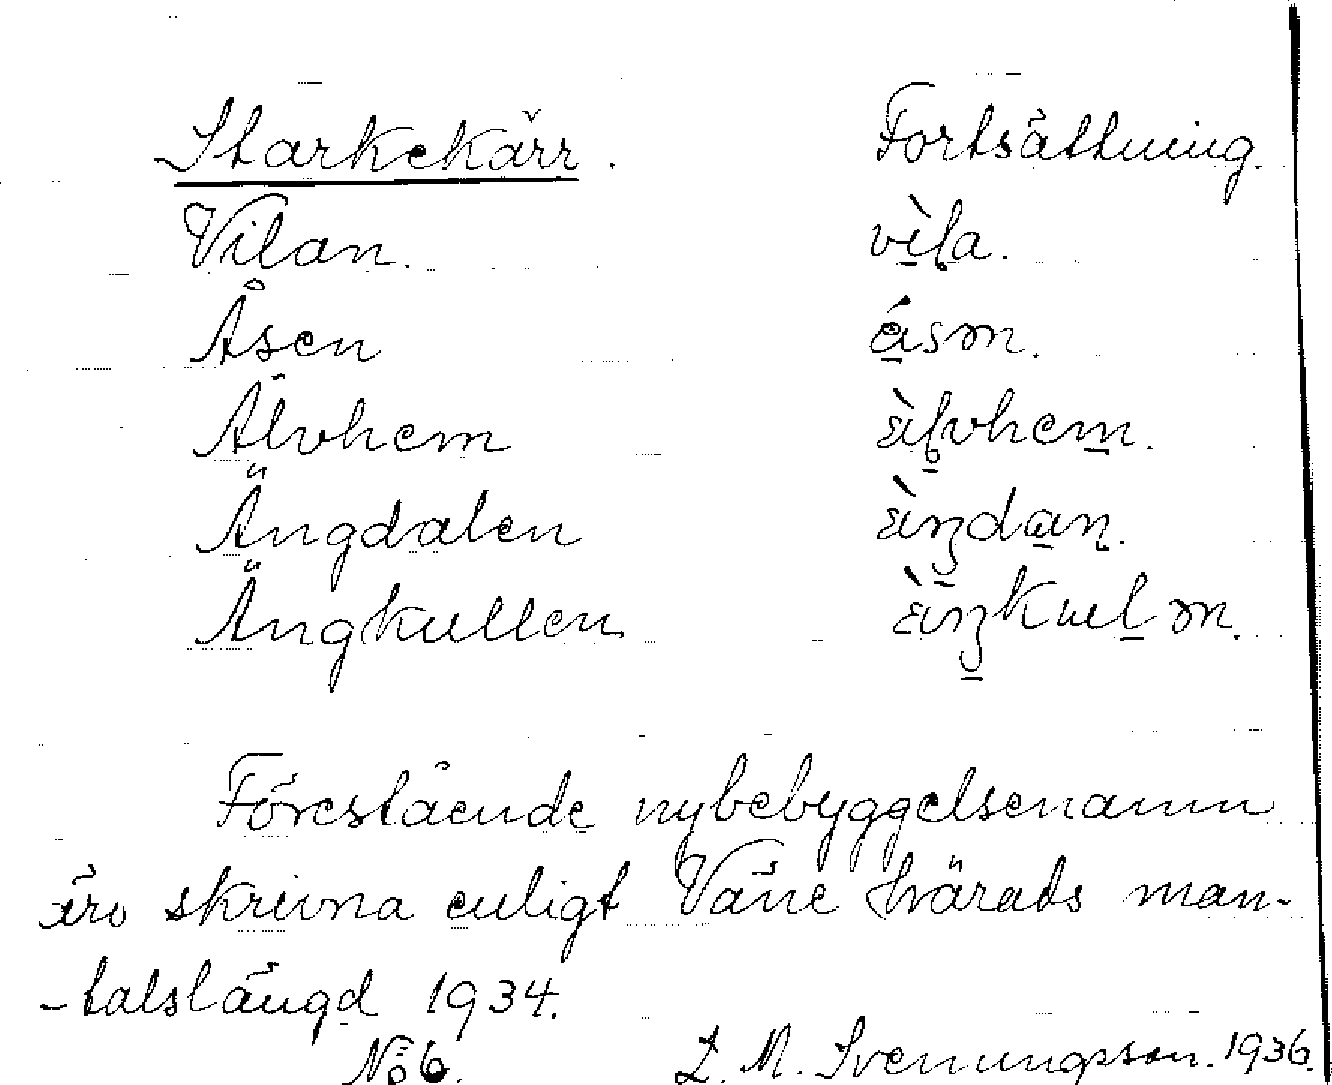 Starkekärr. Fortsättning.
Vilan. vı̀l̥a.
Åsen ásən.
Älvhem ä̀lvhem.
Ängdalen ä̀ŋdan.
Ängkullen ä̀ŋkulən.
Förestående nybebyggelsenamn
äro skrivna enligt Väne härads man-
-talslängd 1934.
No 6. L. M. Svenungsson. 1936.